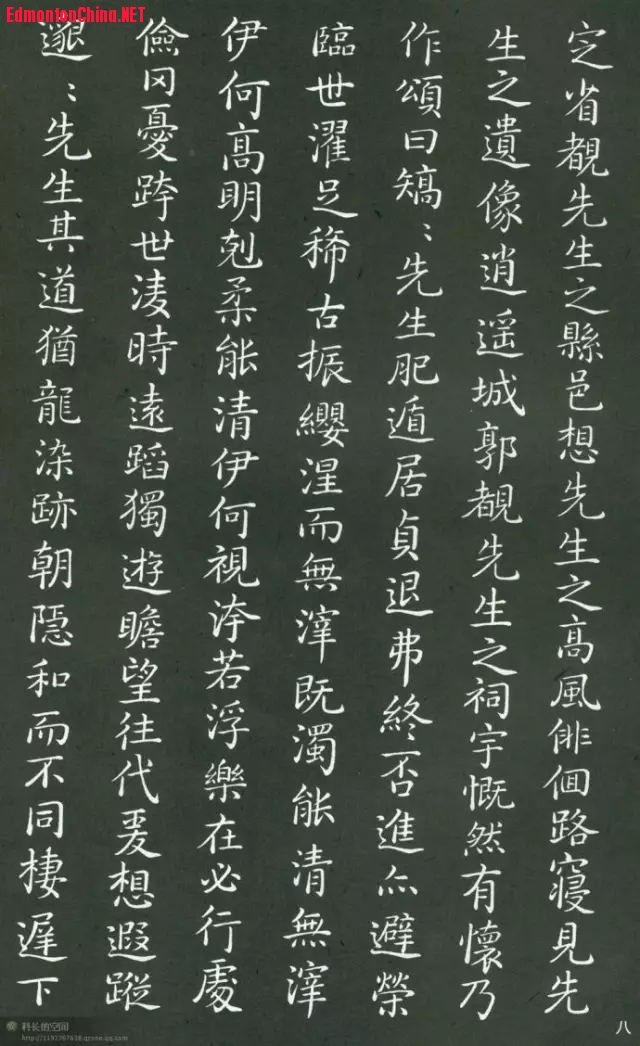 EdmontonChina.NET
http://www.edmontonchina.net
定省覩先生之縣邑想先生之高風俳佪路寝見先
生之遺像逍遥城郭覩先生之祠宇慨然有懷乃
作頌曰矯〻先生肥遁居貞退弗終否進亦避榮
臨世濯足稀古振纓涅而無滓既濁能清無滓
伊何高明剋柔能清伊何視汙若浮樂在必行處
儉罔憂跨世凌時遠蹈獨遊瞻望往代爰想遐蹤
邈〻先生其道猶龍染跡朝隠和而不同棲遲下
八
科长的空间
http://1191767638.qzone.qq.com